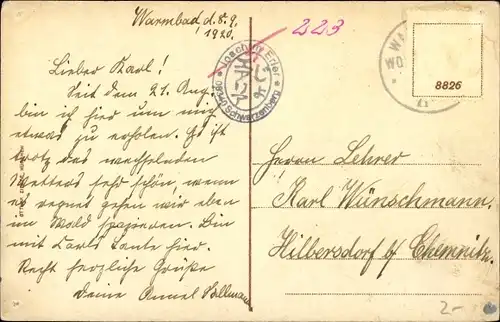 Warmbad, d. 8.9.
1920.
223
Lieber Karl!
Seit dem 21. Aug.
bin ich hier um mich
etwas zu erholen. Es ist
trotz des wechselnden
Wetters sehr schön, wenn
es regnet gehen wir eben
im Wald spazieren. Bin
mit Karls Tante hier.
Recht herzliche Grüße
Deine
Joachim Erler
Schwarzenberg
8826
Herrn Lehrer
Karl Wünschmann.
Hilbersdorf b/ Chemnitz.
2-